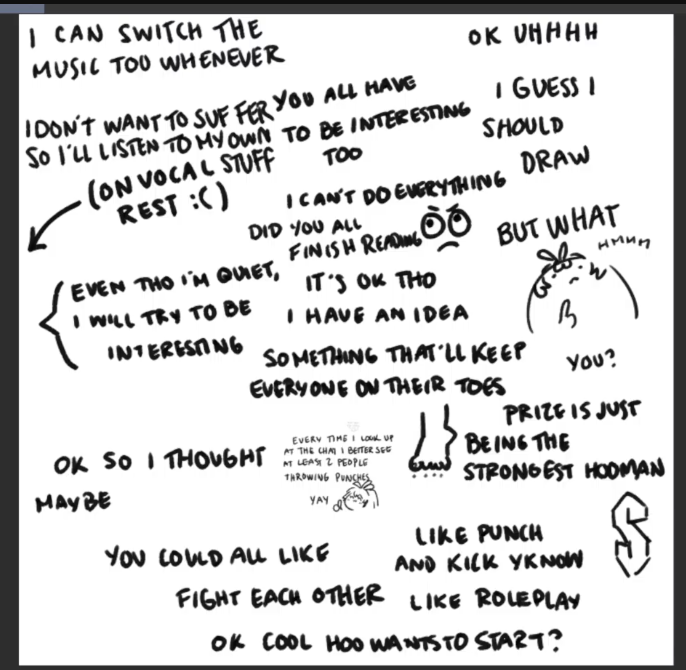 I CAN SWITCH THE
MUSIC TOO WHENEVER
I DON'T WANT TO SUFFER
SO I'LL LISTEN TO MY OWN
(ON VOCAL STUFF
REST :( )
EVEN THO I'M QUIET,
I WILL TRY TO BE
INTERESTING
YOU ALL HAVE
TO BE INTERESTING
TOO
I CAN'T DO EVERYTHING
DID YOU ALL
FINISH READING
IT'S OK THO
I HAVE AN IDEA
SOMETHING THAT'LL KEEP
EVERYONE ON THEIR TOES
OK UHHHH
I GUESS I
SHOULD
DRAW
BUT WHAT
HMMM
YOU?
PRIZE IS JUST
BEING THE
STRONGEST HOOMAN
EVERY TIME I LOOK UP
AT THE CHAT I BETTER SEE
AT LEAST 2 PEOPLE
THROWING PUNCHES
YAY
OK SO I THOUGHT
MAYBE
YOU COULD ALL LIKE
FIGHT EACH OTHER
LIKE PUNCH
AND KICK YKNOW
LIKE ROLEPLAY
OK COOL HOO WANTS TO START?